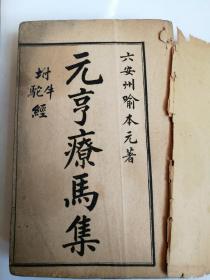 六安州喻本元著
元亨療馬集
附牛駝經